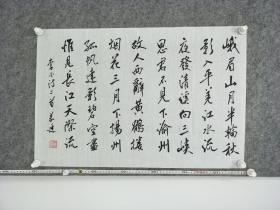 峨眉山月半輪秋
影入平羌江水流
夜發清溪向三峽
思君不見下渝州
故人西辭黃鶴樓
烟花三月下揚州
孤帆遠影碧空盡
惟見長江天際流
李白詩二首